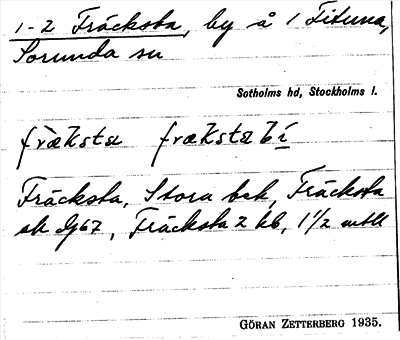 1-2 Fräcksta, by å 1 Fituna,
Sorunda sn
Sotholms hd, Stockholms l.
fræksta frækstabi
Fräcksta, Stora bek, Fräcksta
ek 67, Fräcksta 2 hb, 1 1/2 mtl
GÖRAN ZETTERBERG 1935.